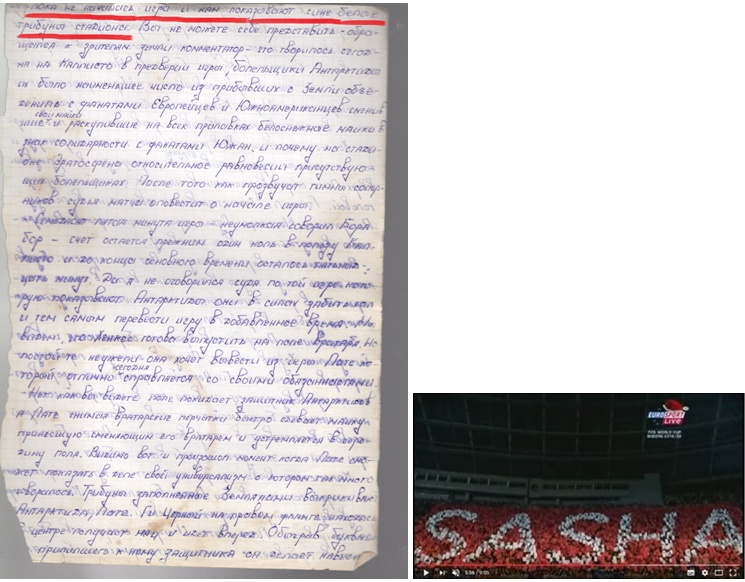 пока не началась игра и нам показывают сине белые
трибуны стадиона. Вы не можете себе представить - обра-
щается к зрителям земли комментатор - что творилось сегод-
ня на Каллисто в преддверии игры, болельщики Антарктиды
их было наименьшее число из прибывших с Земли объе-
денились с фанатами Европейцев и Южноамериканцев сменив
свои майки
шие и раскупившие на всех прилавках белоснежные майки в
знак солидарности с фанатами Южан, и почему на стади-
оне Эратосфена относительное равновесии присутствую-
щих болельщиках После того как прозвучат гимны сопер-
ников судья матча оповестит о начале игры.
- Семьдесят пятая минута игры - неумолкая говорил
бор - счет остается прежним один ноль в пользу
и до конца основного времени осталось
минут. Да я не оговорился судя по той игре кото-
рую показывают Антарктида они в силах забить гол
и тем самым перевести игру в добавленное время. Мы
видим, что готова выпустить на поле вратаря. Но
постойте неужели она хочет вывести из игры Пате ко-
сегодня
торый отлично справляется со своими обязанностями
- Нет как вы видете поле покидает защитник Антарктиды
а Пате снимая вратарские перчатки быстро одевает майку
принесшую сменяющим его вратарем и устремляется в сере-
дину поля. Видимо вот и произошел момент когда Пате смо-
жет показать в деле свой универсализм о котором так много
говорилось. Трибуны заполненные Землянами выкрикивают
Антарктида, Пате. Ги Черной на правом фланге
центре получает мяч и идет вперед Обыграв буквально
прилипшего к нему защитника он делает навес
EUROSPORT
LIVE
FIFA WORLD CUP
SASHA
5:56 / 9:55